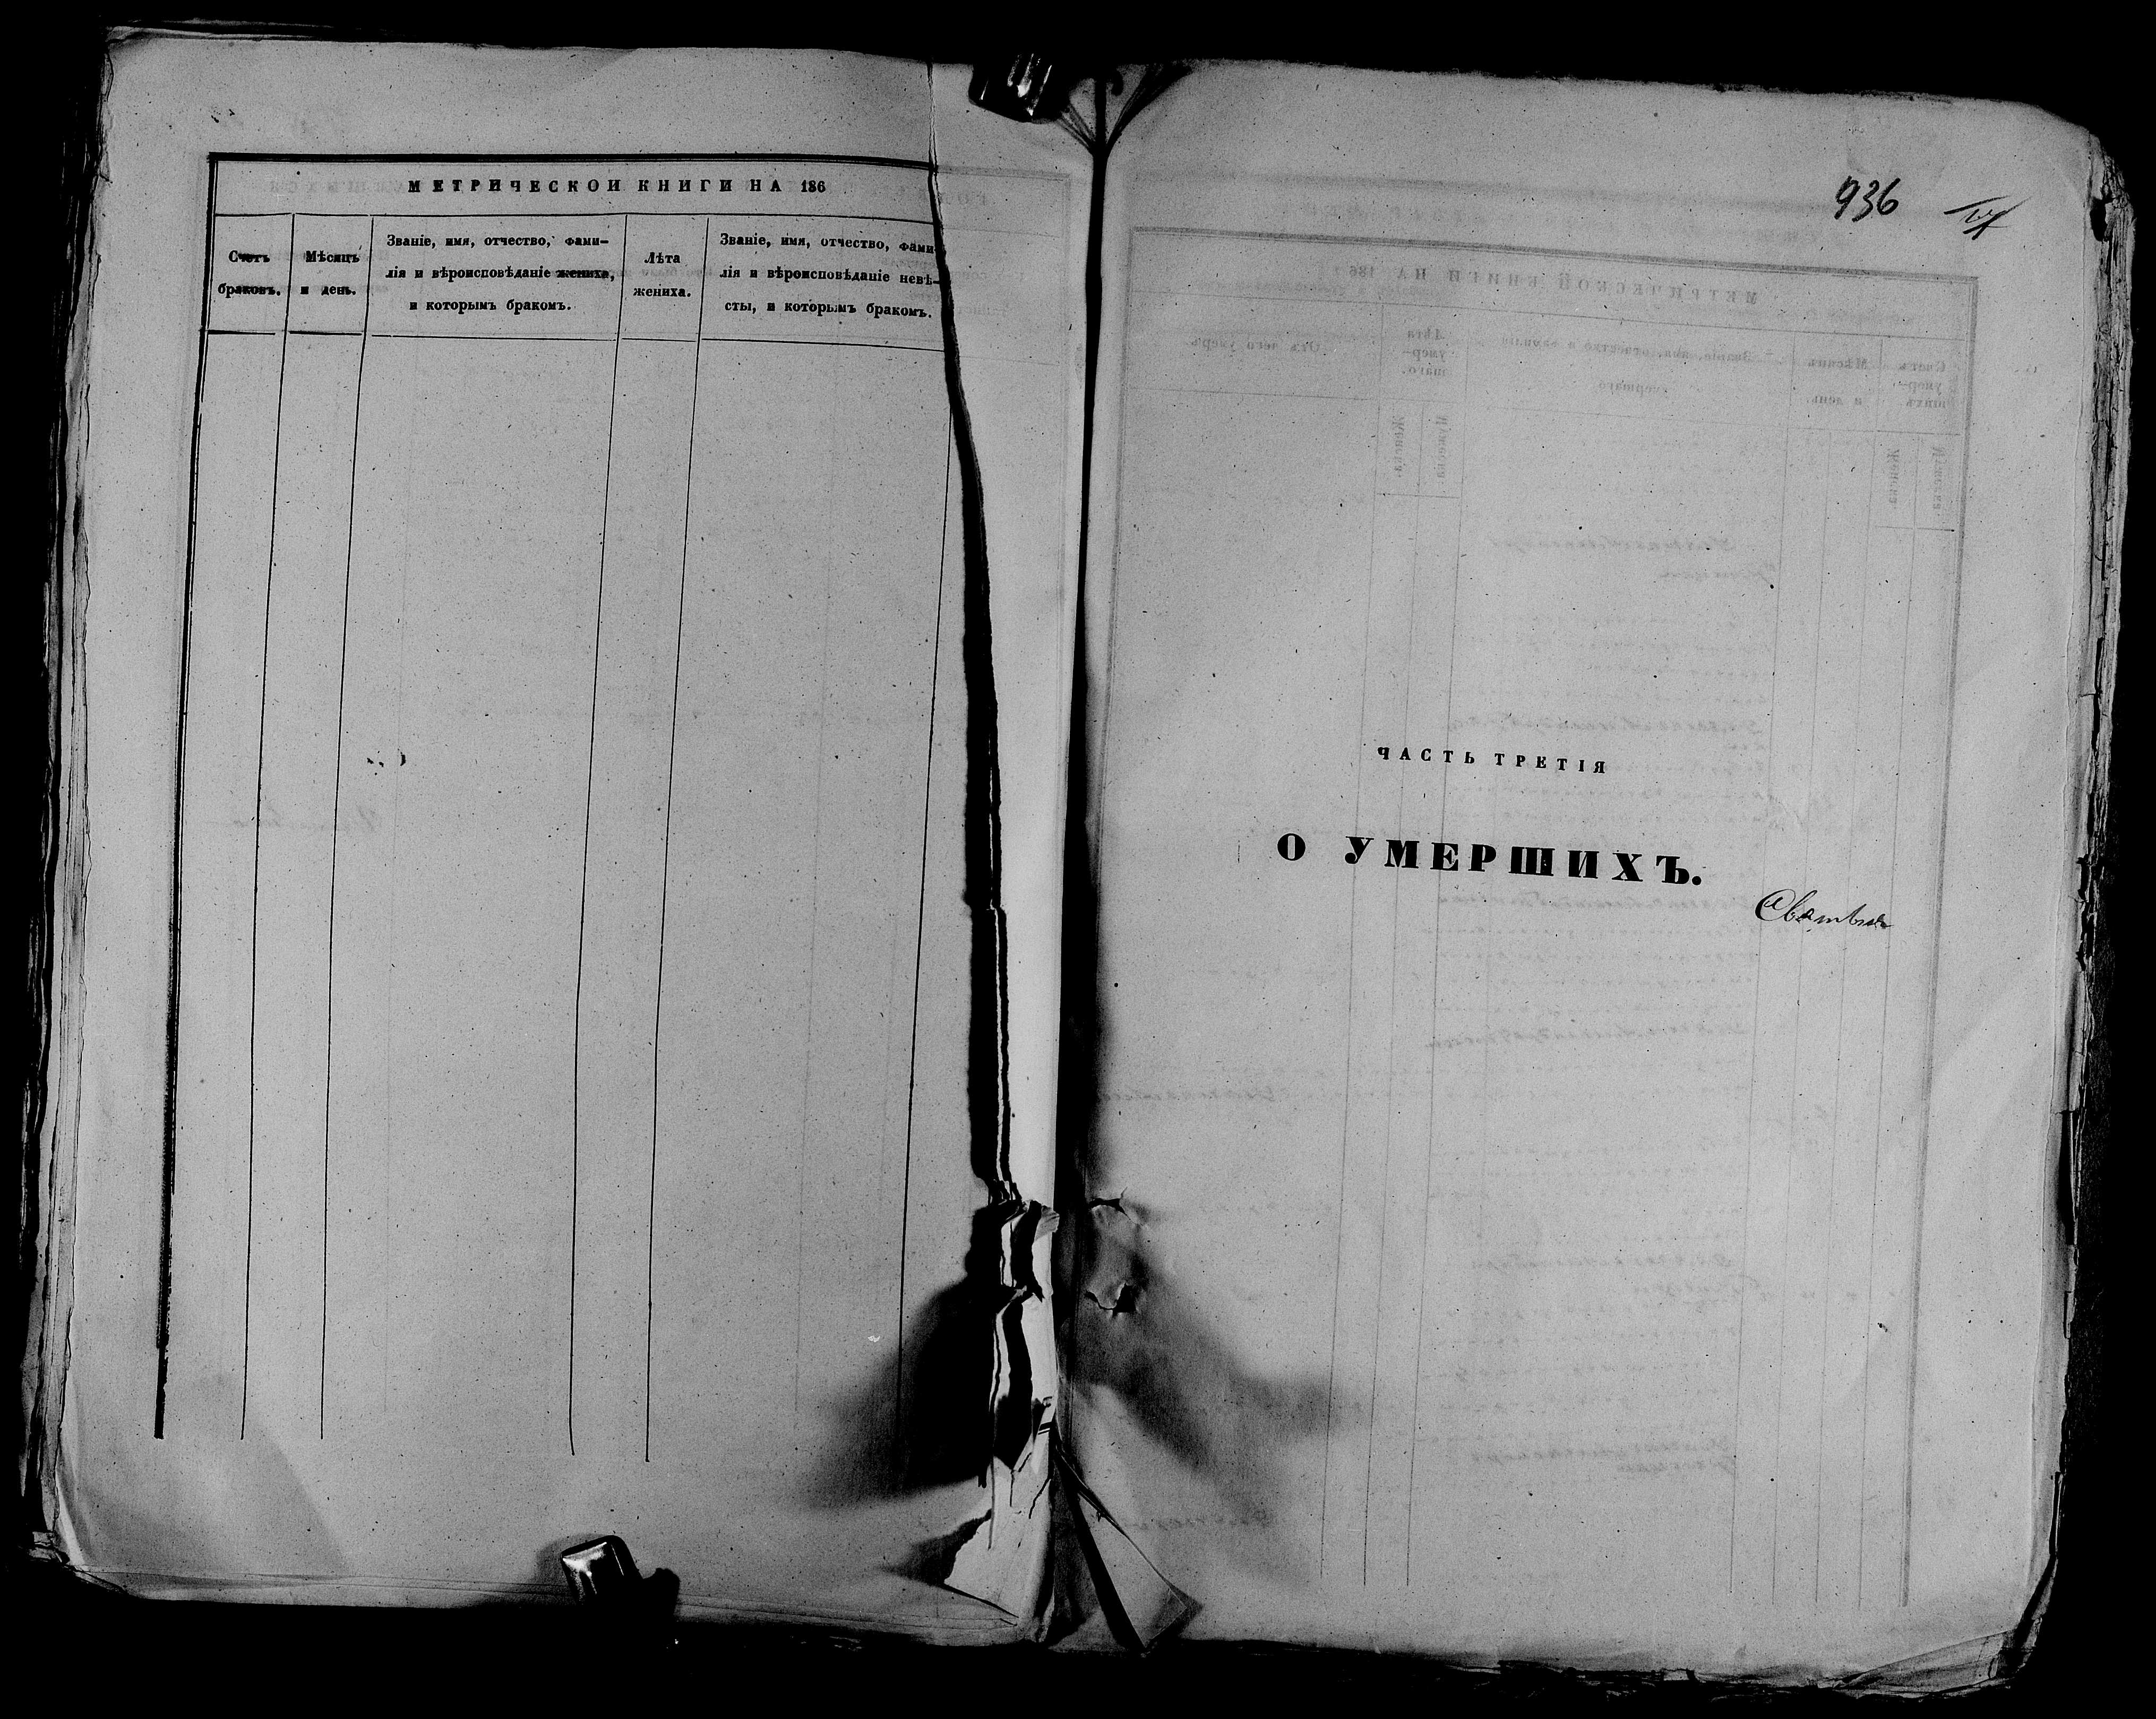 МЕТРИЧЕСКОЙ КНИГИ НА 186
Счетъ
браковъ.
Мѣсяцъ
и день.
Званіе, имя, отчество, фами-
лія и вѣроисповѣданіе жениха,
и которымъ бракомъ.
Лѣта
жениха.
Званіе, имя, отчество, фами-
лія и вѣроисповѣданіе невѣ-
сты, и которымъ бракомъ.
936
ЧАСТЬ ТРЕТІЯ
О УМЕРШИХЪ.